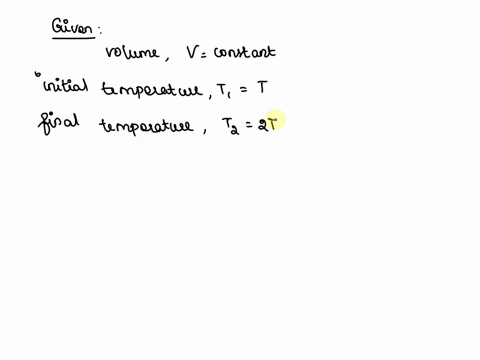 Given:
volume, V = constant
initial temperature, T₁ = T
final temperature, T₂ = 2T